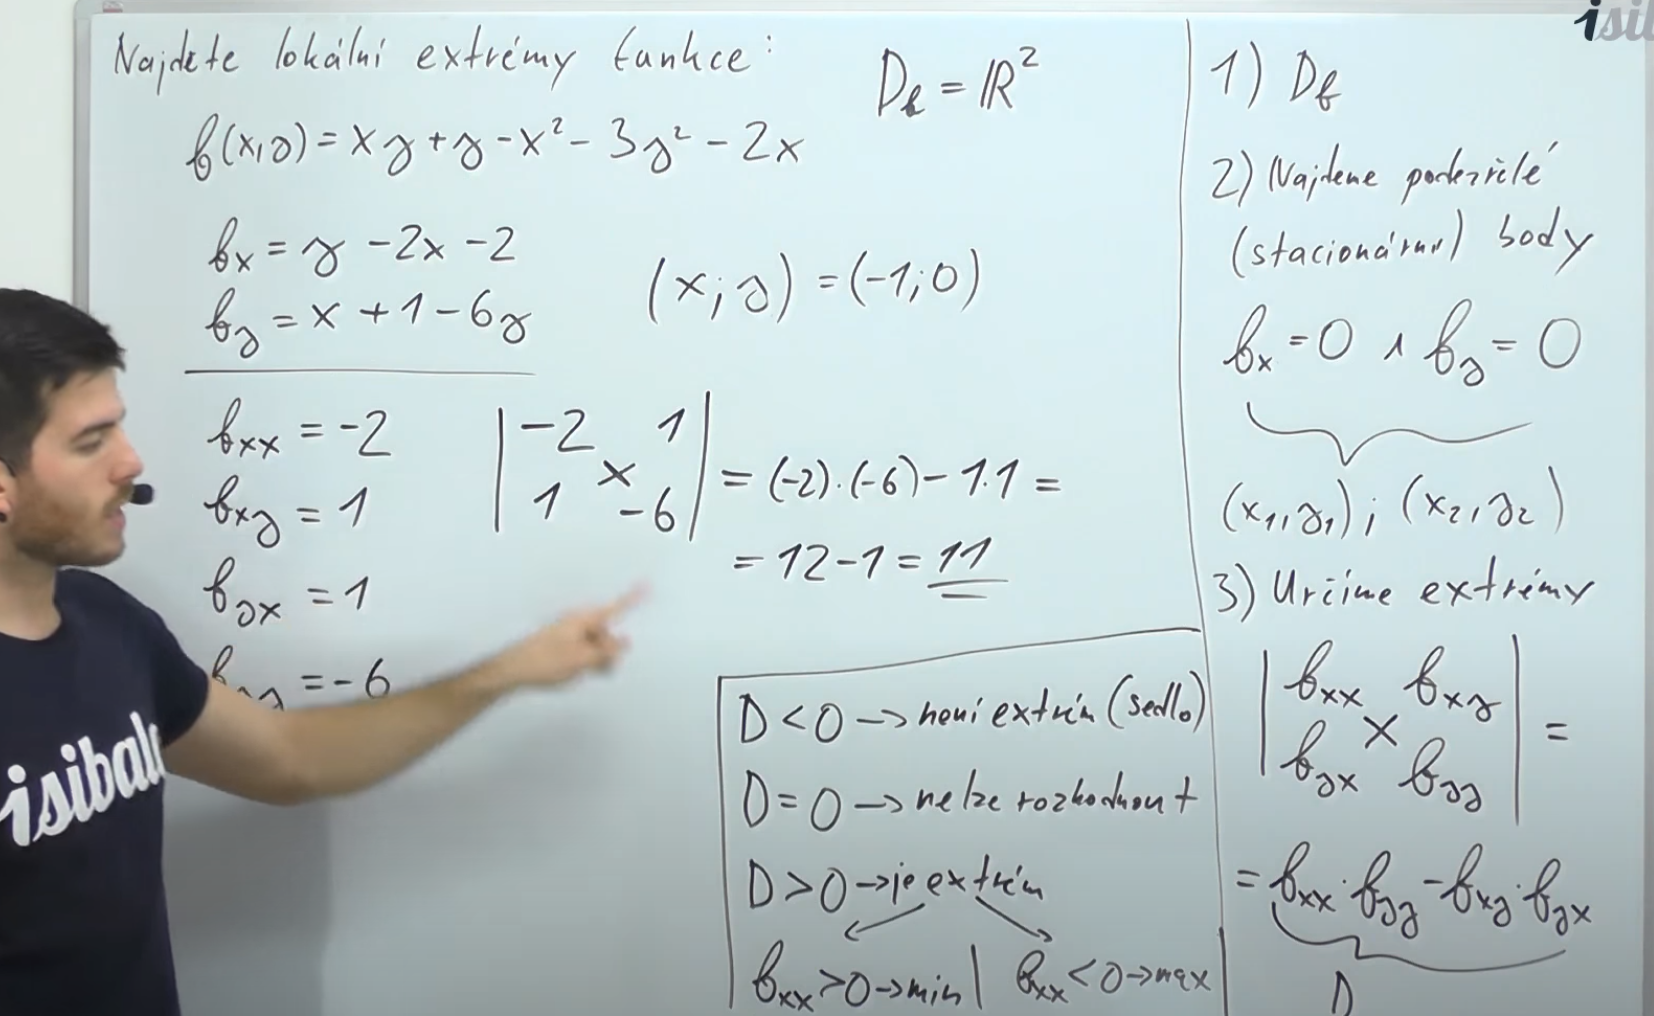 Najdete lokální extrémy funkce:
f(x,y) = xy + y - x² - 3y² - 2x
D_f = ℝ²
f_x = y - 2x - 2
f_y = x + 1 - 6y
(x; y) = (-1; 0)
f_xx = -2
f_xy = 1
f_yx = 1
f_yy = -6
| -2 1 |
| 1 -6 | = (-2)·(-6) - 1·1 =
= 12 - 1 = 11
D < 0 → není extrém (sedlo)
D = 0 → nelze rozhodnout
D > 0 → je extrém
f_xx > 0 → min | f_xx < 0 → max
1) D_f
2) Najdeme podezřelé
(stacionární) body
f_x = 0 ∧ f_y = 0
(x₁, y₁); (x₂, y₂)
3) Určíme extrémy
| f_xx f_xy |
| f_yx f_yy | =
= f_xx · f_yy - f_xy · f_yx
D
isibalo